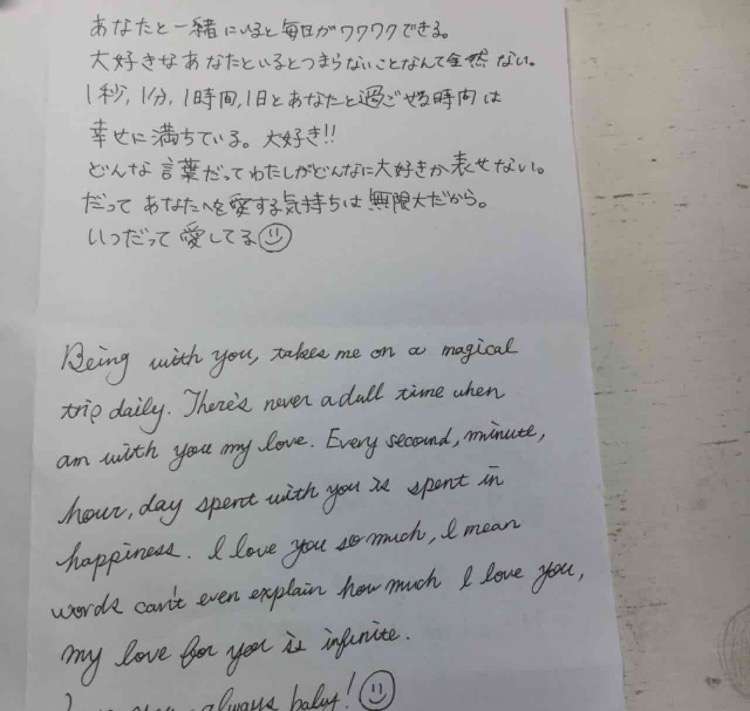 あなたと一緒にいると毎日がワクワクできる。
大好きなあなたといるとつまらないことなんて全然ない。
1秒,1分,1時間,1日とあなたと過ごせる時間は
幸せに満ちている。大好き!!
どんな言葉だってわたしがどんなに大好きか表せない。
だってあなたへを愛する気持ちは無限大だから。
いつだって愛してる☺
Being with you, takes me on a magical
trip daily. There's never a dull time when
am with you my love. Every second, minute,
hour, day spent with you is spent in
happiness. I love you so much, I mean
words can't even explain how much I love you,
my love for you is infinite.
always baby! ☺